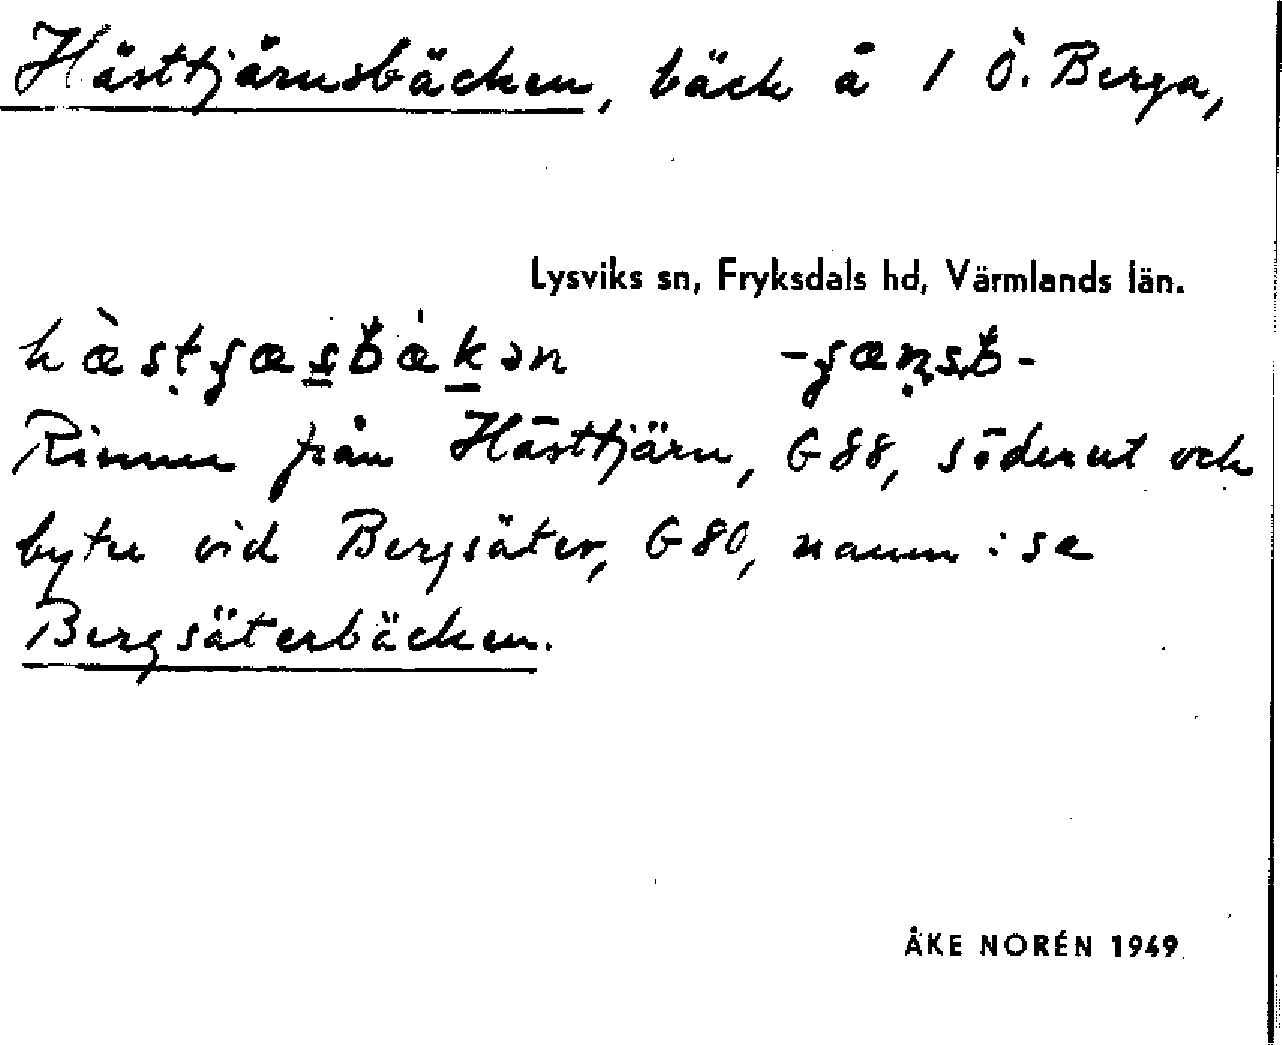 Hästtjärnsbäcken, bäck å 1 Ö. Berga,
Lysviks sn, Fryksdals hd, Värmlands län.
Rinner från Hästtjärn, G88, söderut och
byter vid Bergsäter, G80, namn : se
Bergsäterbäcken.
ÅKE NORÉN 1949